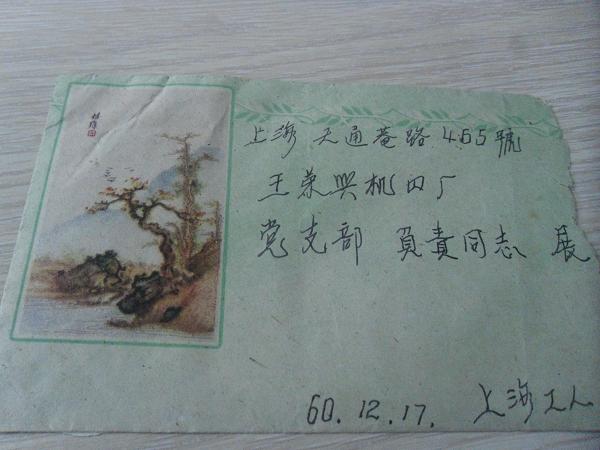 上海 天通菴路 465號
王荣興机四厂
党支部 負責同志 展
60.12.17. 上海工人